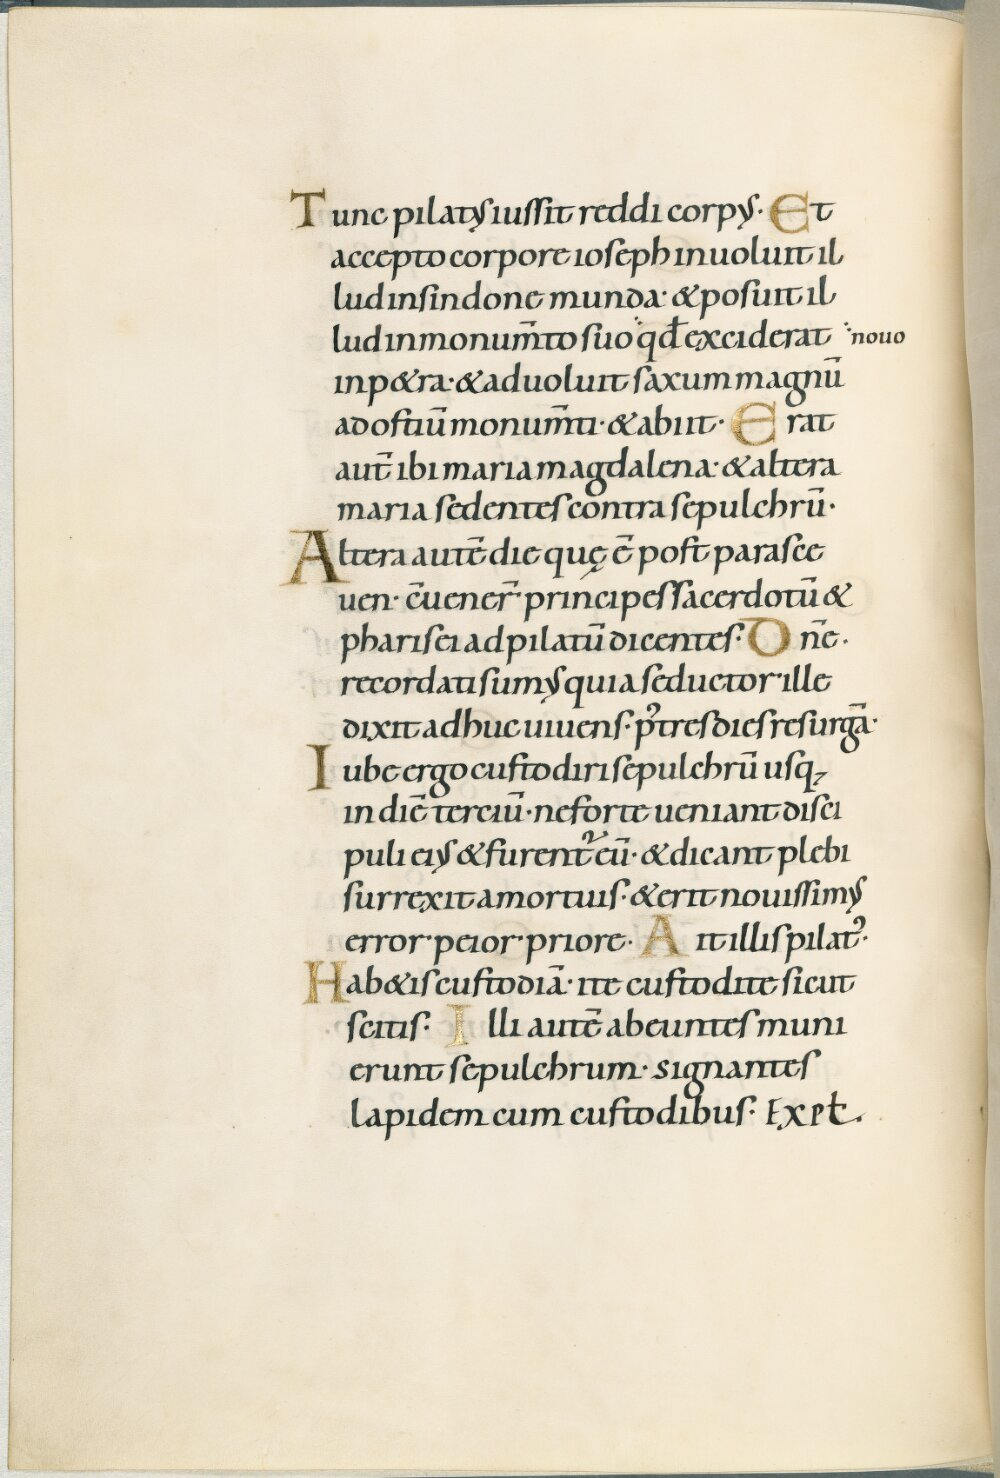 Tunc pilatus iussit reddi corpus· Et
accepto corpore ioseph inuoluit il
lud insindone munda· & posuit il
lud inmonum̄to suo qd̄ exciderat novo
inp&ra· & aduoluit saxum magnū
ad ostiū monum̄ti· & abiit· Erat
aut̄ ibi maria magdalena· & altera
maria sedentes contra sepulchrū·
Altera autē die quę ē post parasce
uen· c̄uener̄· principes sacerdotū &
pharisei ad pilatū dicentes· Dn̄e·
recordati sumus quia seductor ille
dixit adhuc uiuens· p᾽ tres dies resurgā·
Iube ergo custodiri sepulchrū usq;
in diē terciū· ne forte ueniant disci
puli eius & furent᷑ eū· & dicant plebi
surrexit amortuis· & erit nouissimus
error peior priore· Ait illis pilat᾽·
Hab&is custodiā· ite custodite sicut
scitis· Illi autē abeuntes muni
erunt sepulchrum· signantes
lapidem cum custodibus· Expł.